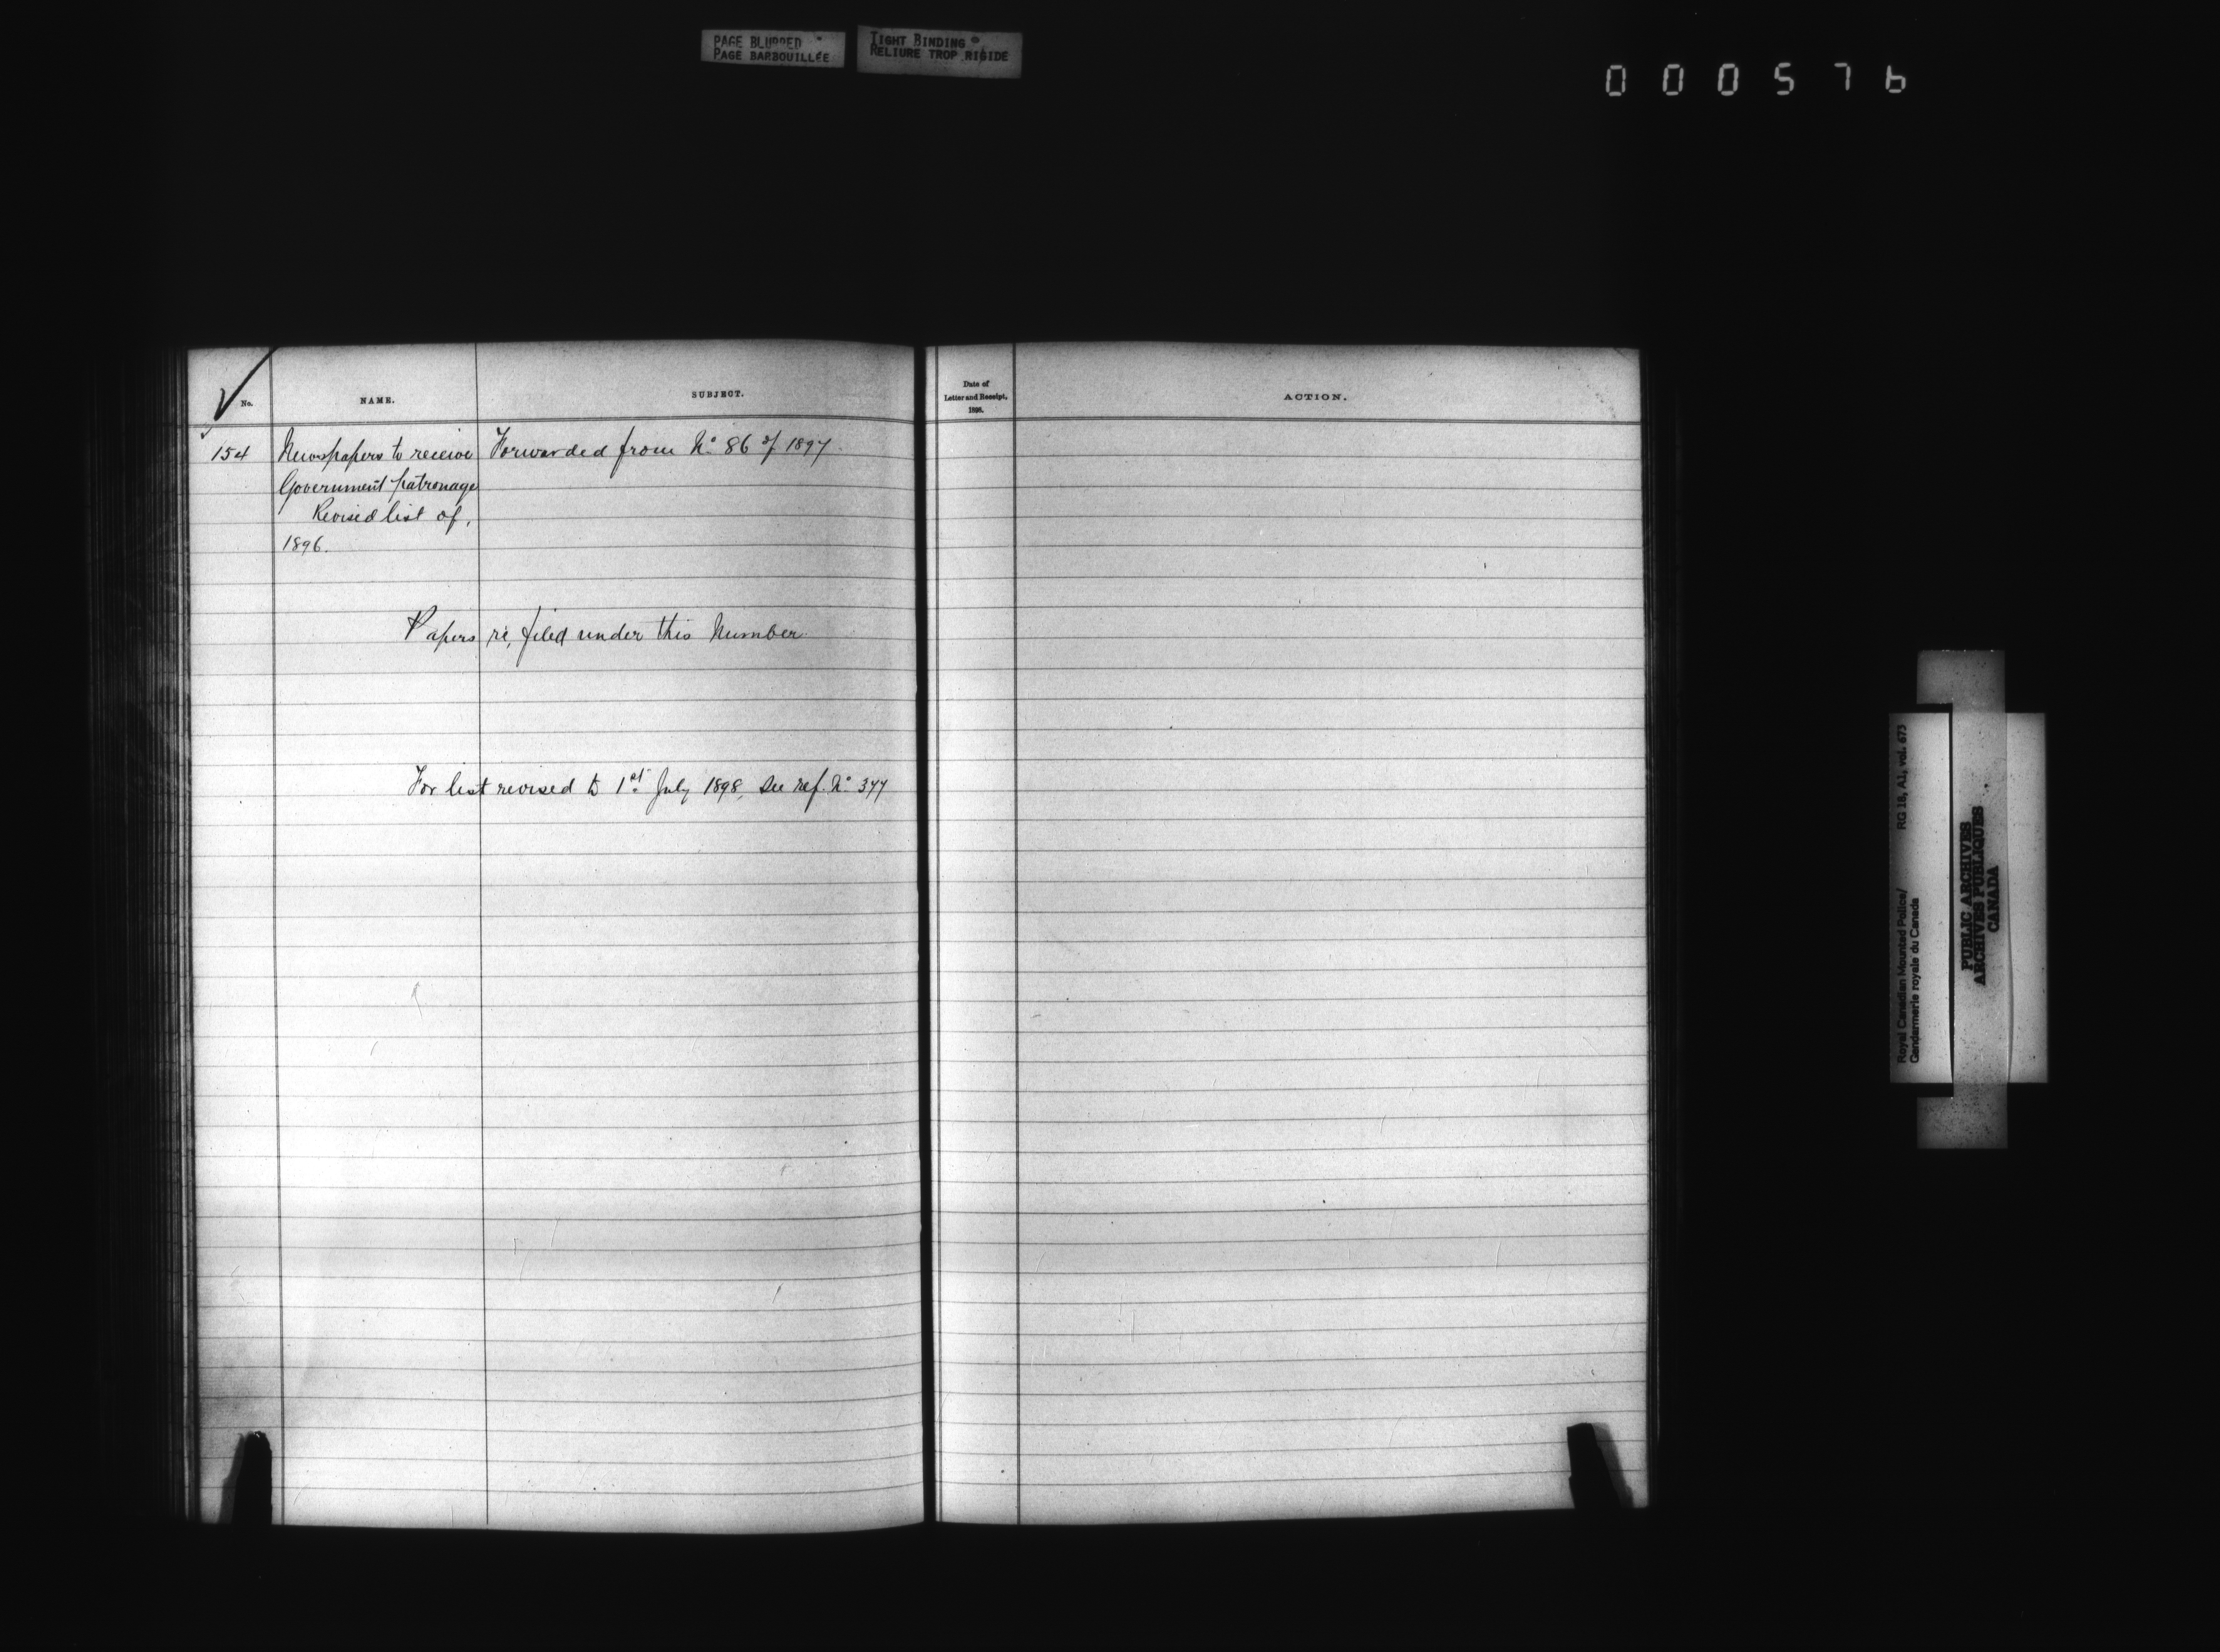 PAGE BLURRED
PAGE BARBOUILLÉE
TIGHT BINDING
RELIURE TROP RIGIDE
000576
No.
NAME.
SUBJECT.
Date of
Letter and Receipt,
1898.
ACTION.
154
Newspapers to receive
Government patronage
Revised list of,
1896.
Forwarded from No. 86 of 1897.
Papers re, filed under this Number.
For list revised to 1st July 1898, see ref. No 377
Royal Canadian Mounted Police/ RG 18, A1, vol. 673
Gendarmerie royale du Canada
PUBLIC ARCHIVES
ARCHIVES PUBLIQUES
CANADA